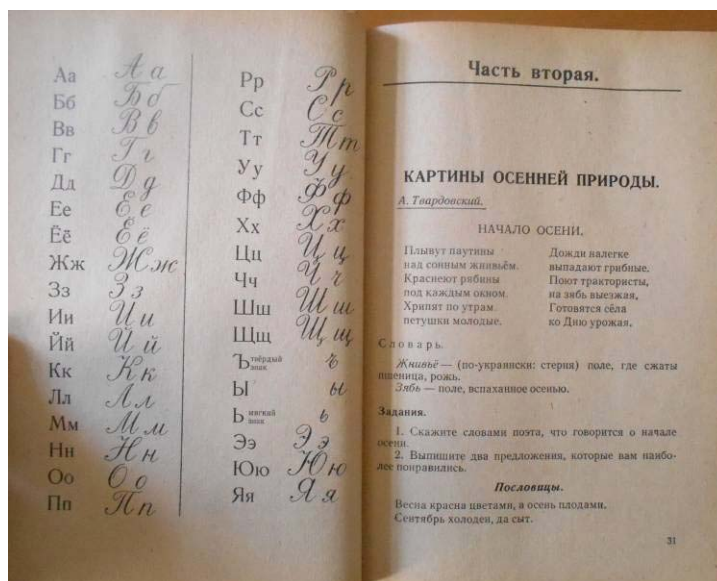 Аа Аа
Бб Бб
Вв Вв
Гг Гг
Дд Дд
Ее Ее
Ёё Ёё
Жж Жж
Зз Зз
Ии Ии
Йй Йй
Кк Кк
Лл Лл
Мм Мм
Нн Нн
Оо Оо
Пп Пп
Рр Рр
Сс Сс
Тт Тт
Уу Уу
Фф Фф
Хх Хх
Цц Цц
Чч Чч
Шш Шш
Щщ Щщ
Ъ твёрдый знак ъ
Ы ы
Ь мягкий знак ь
Ээ Ээ
Юю Юю
Яя Яя
Часть вторая.
КАРТИНЫ ОСЕННЕЙ ПРИРОДЫ.
А. Твардовский.
НАЧАЛО ОСЕНИ.
Плывут паутины
над сонным жнивьём.
Краснеют рябины
под каждым окном.
Хрипят по утрам
петушки молодые.
Дожди налегке
выпадают грибные.
Поют трактористы,
на зябь выезжая,
Готовятся сёла
ко Дню урожая.
Словарь.
Жнивьё — (по-украински: стерня) поле, где сжаты
пшеница, рожь.
Зябь — поле, вспаханное осенью.
Задания.
1. Скажите словами поэта, что говорится о начале
осени.
2. Выпишите два предложения, которые вам наибо-
лее понравились.
Пословицы.
Весна красна цветами, а осень плодами.
Сентябрь холоден, да сыт.
31